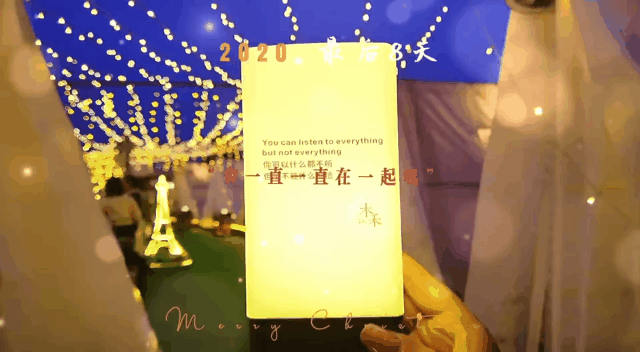 2020 最后8天
You can listen to everything
but not everything
你可以什么都不听
一直一直在一起
未来
Merry Christ